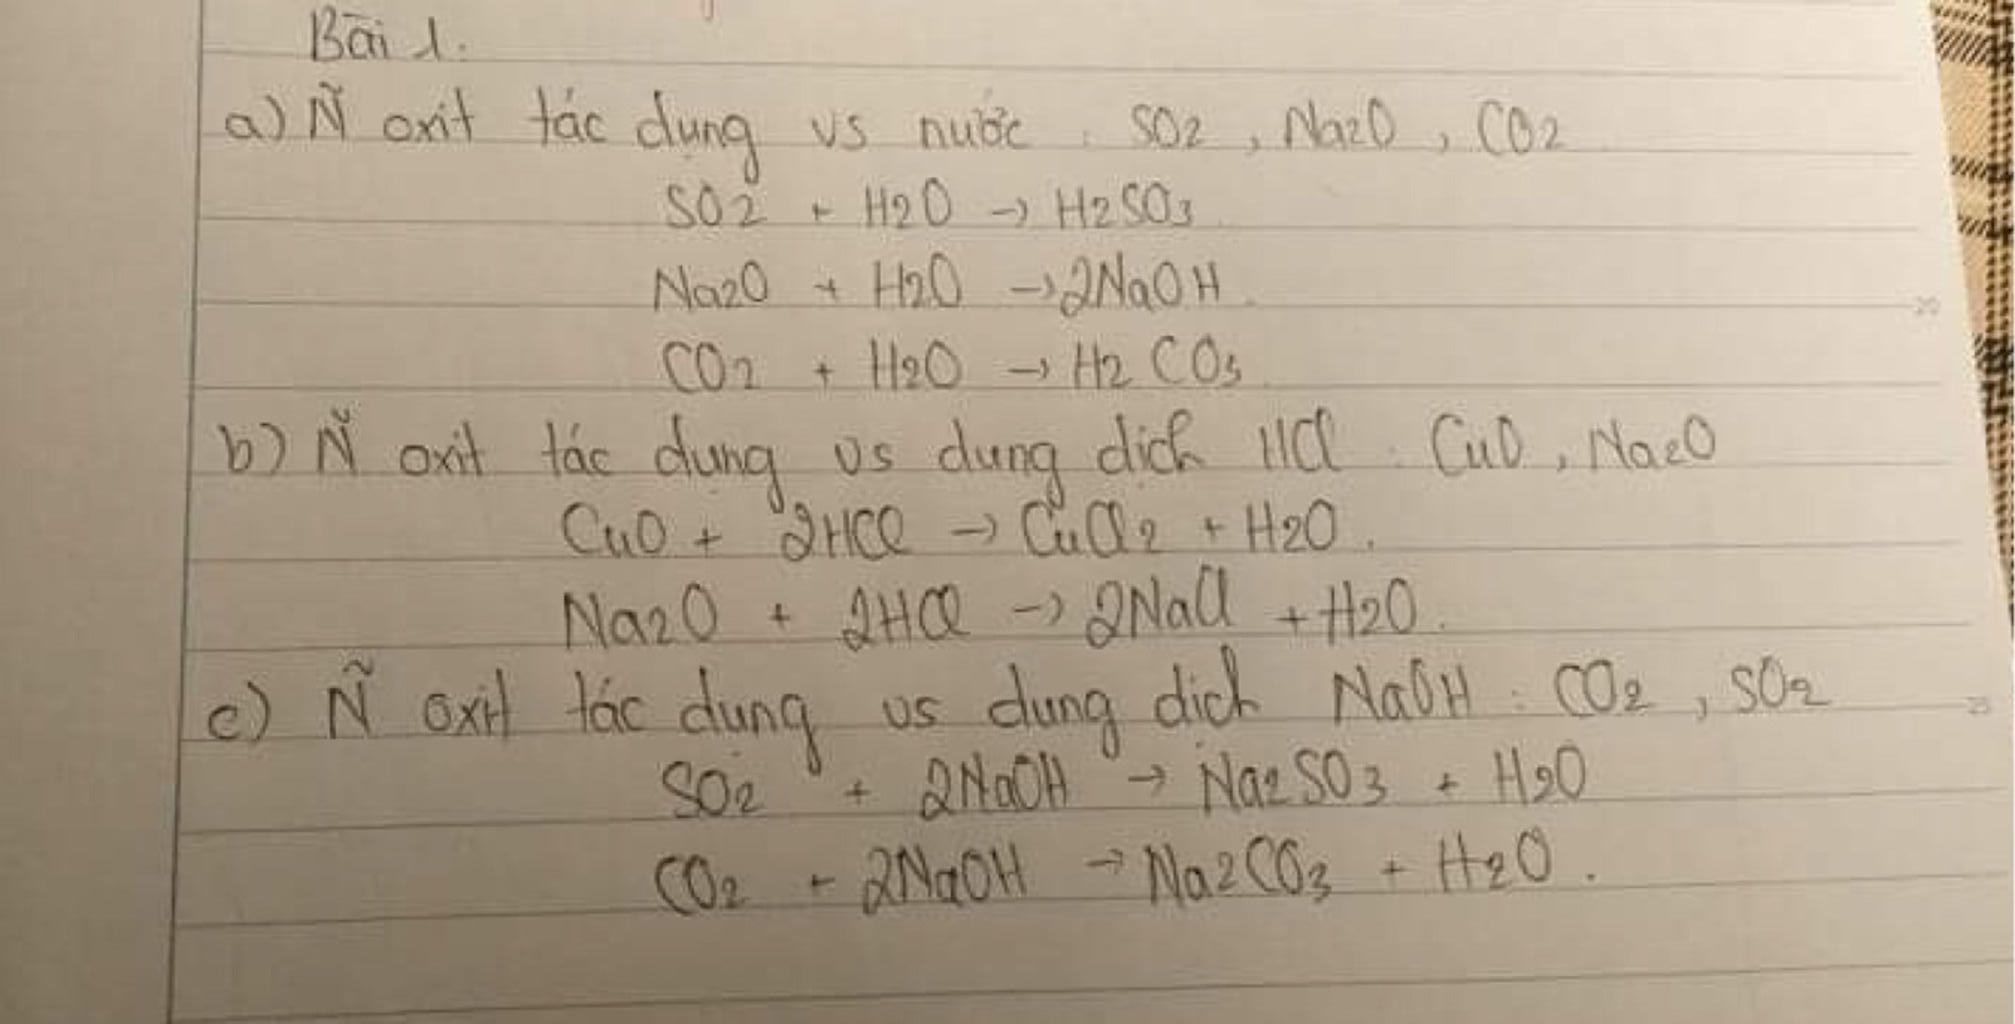 Bài 1.
a) Ñ oxit tác dụng vs nước : SO2 , Na2O , CO2
SO2 + H2O → H2SO3
Na2O + H2O → 2NaOH
CO2 + H2O → H2CO3
b) Ñ oxit tác dụng vs dung dịch HCl : CuO , Na2O
CuO + 2HCl → CuCl2 + H2O .
Na2O + 2HCl → 2NaCl + H2O .
c) Ñ oxit tác dụng vs dung dịch NaOH : CO2 , SO2
SO2 + 2NaOH → Na2SO3 + H2O
CO2 + 2NaOH → Na2CO3 + H2O .